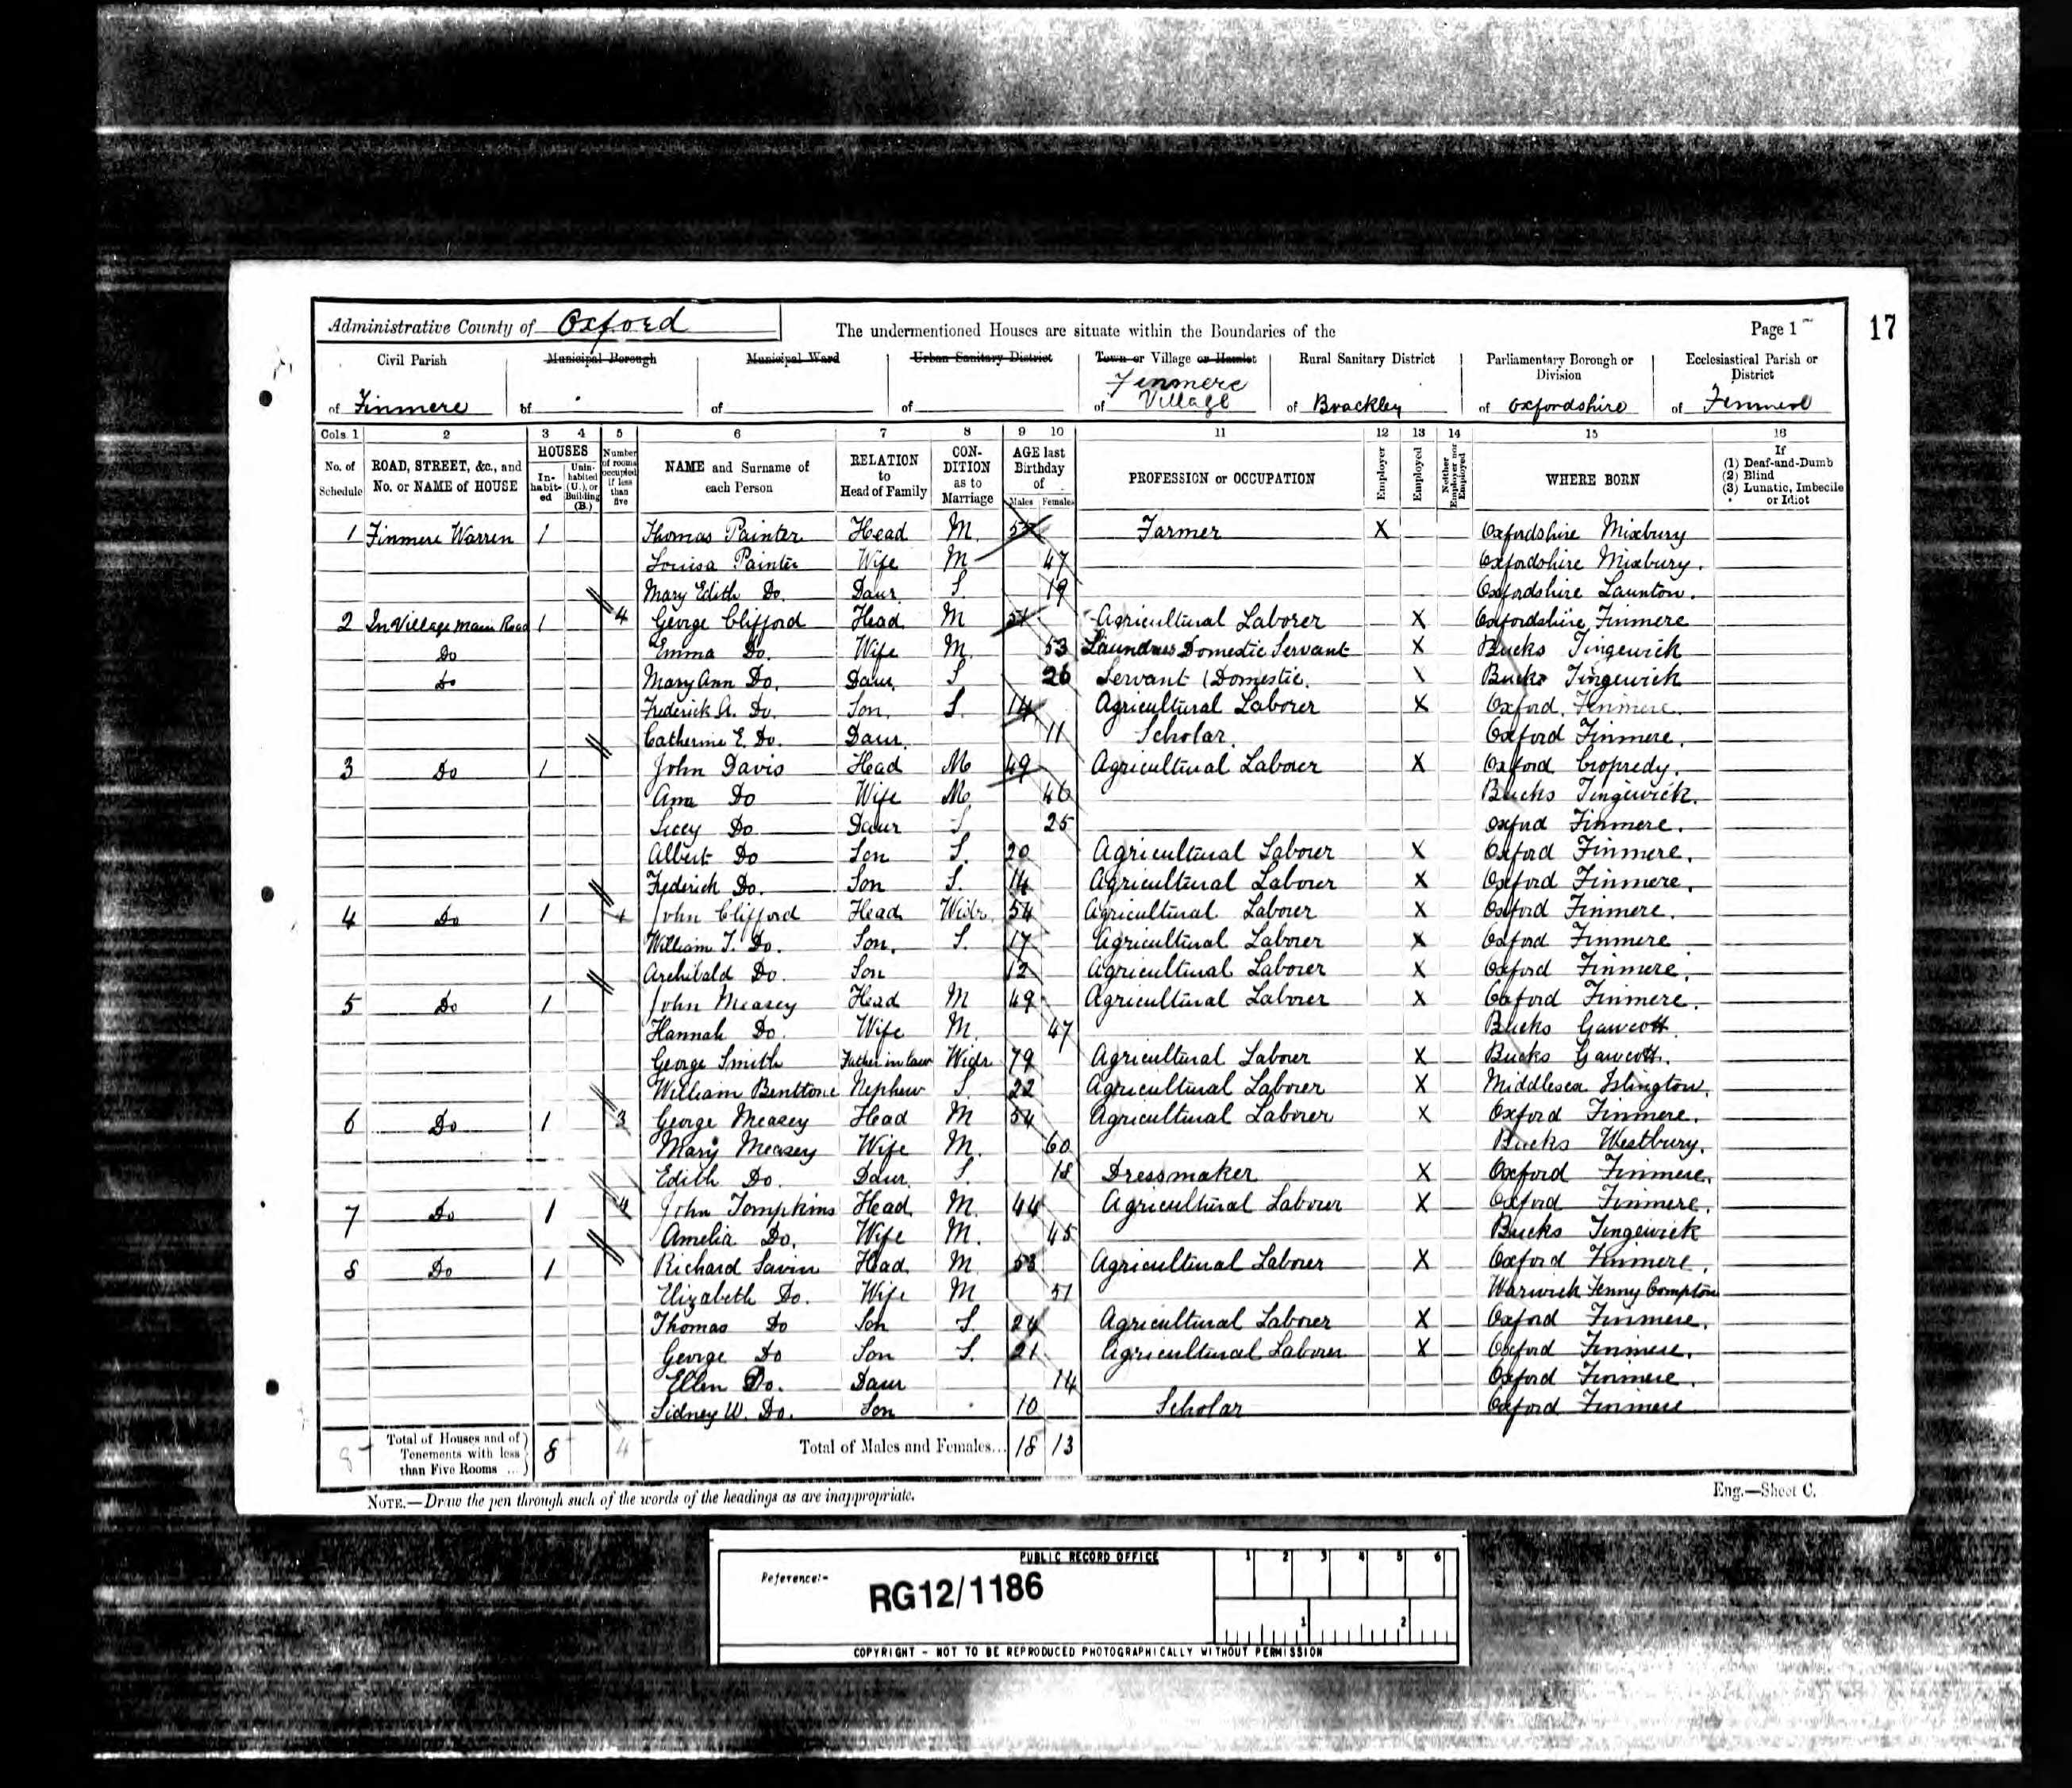 Administrative County of Oxford
The undermentioned Houses are situate within the Boundaries of the
Page 1
17
Civil Parish of Finmere
Municipal Borough of
Municipal Ward of
Urban Sanitary District of
Town or Village or Hamlet of Finmere Village
Rural Sanitary District of Brackley
Parliamentary Borough or Division of Oxfordshire
Ecclesiastical Parish or District of Finmere
Cols. 1 2 3 4 5 6 7 8 9 10 11 12 13 14 15 16
No. of Schedule
ROAD, STREET, &c., and No. or NAME of HOUSE
HOUSES
In-habit-ed
Unin-habited (U.), or Building (B.)
Number of rooms occupied if less than five
NAME and Surname of each Person
RELATION to Head of Family
CON-DITION as to Marriage
AGE last Birthday of
Males Females
PROFESSION or OCCUPATION
Employer
Employed
Neither Employer nor Employed
WHERE BORN
If (1) Deaf-and-Dumb (2) Blind (3) Lunatic, Imbecile or Idiot
1 Finmere Warren 1 Thomas Painter Head M. Farmer X Oxfordshire Mixbury
Louisa Painter Wife M 47 Oxfordshire Mixbury.
Mary Edith Do. Daur. S. 19 Oxfordshire Launton.
2 In Village Main Road 1 4 George Clifford Head M 51 Agricultural Laborer X Oxfordshire Finmere
Do Emma Do. Wife M. 53 Laundress Domestic Servant X Bucks Tingewick
Do Mary Ann Do. Daur. S 26 Servant (Domestic. X Bucks Tingewick
Frederick A. Do. Son. S. 14 Agricultural Laborer X Oxford. Finmere.
Catherine E. Do. Daur. 11 Scholar. Oxford Finmere.
3 Do 1 John Davis Head M 49 Agricultural Laborer X Oxford Cropredy.
Ann Do Wife M. 46 Bucks Tingewick.
Licey Do Daur S 25 Oxford Finmere.
Albert Do Son S. 20 Agricultural Laborer X Oxford Finmere.
Frederick Do. Son S. 14 Agricultural Laborer X Oxford Finmere.
4 Do 1 4 John Clifford Head Widr. 54 Agricultural Laborer X Oxford Finmere.
William T. Do. Son. S. 17 Agricultural Laborer X Oxford Finmere
Archibald Do. Son 12 Agricultural Laborer X Oxford Finmere.
5 Do 1 John Measey Head M 49 Agricultural Laborer X Oxford Finmere.
Hannah Do. Wife M. 47 Bucks Gawcott
George Smith Father in law Widr 79 Agricultural Laborer X Bucks Gawcott.
William Nephew S. 22 Agricultural Laborer X Middlesex Islington.
6 Do 1 3 George Measey Head M 54 Agricultural Laborer X Oxford Finmere.
Mary Measey Wife M. 60 Bucks Westbury.
Edith Do. Daur. S. 18 Dressmaker X Oxford Finmere.
7 Do 1 4 John Tompkins Head M. 44 Agricultural Laborer X Oxford Finmere.
Amelia Do. Wife M. 45 Bucks Tingewick
8 Do 1 Richard Savin Head M 53 Agricultural Laborer X Oxford Finmere.
Elizabeth Do. Wife M 51 Warwick Fenny Compton
Thomas Do Son S. 24 Agricultural Laborer X Oxford Finmere.
George Do Son S. 21 Agricultural Laborer X Oxford Finmere.
Ellen Do. Daur 14 Oxford Finmere.
Sidney W. Do. Son 10 Scholar Oxford Finmere
8 Total of Houses and of Tenements with less than Five Rooms ... 8 4 Total of Males and Females... 18 13
NOTE.—Draw the pen through such of the words of the headings as are inappropriate.
Eng.—Sheet C.
PUBLIC RECORD OFFICE
1 2 3 4 5 6
Reference:-
RG12/1186
1 2
COPYRIGHT - NOT TO BE REPRODUCED PHOTOGRAPHICALLY WITHOUT PERMISSION